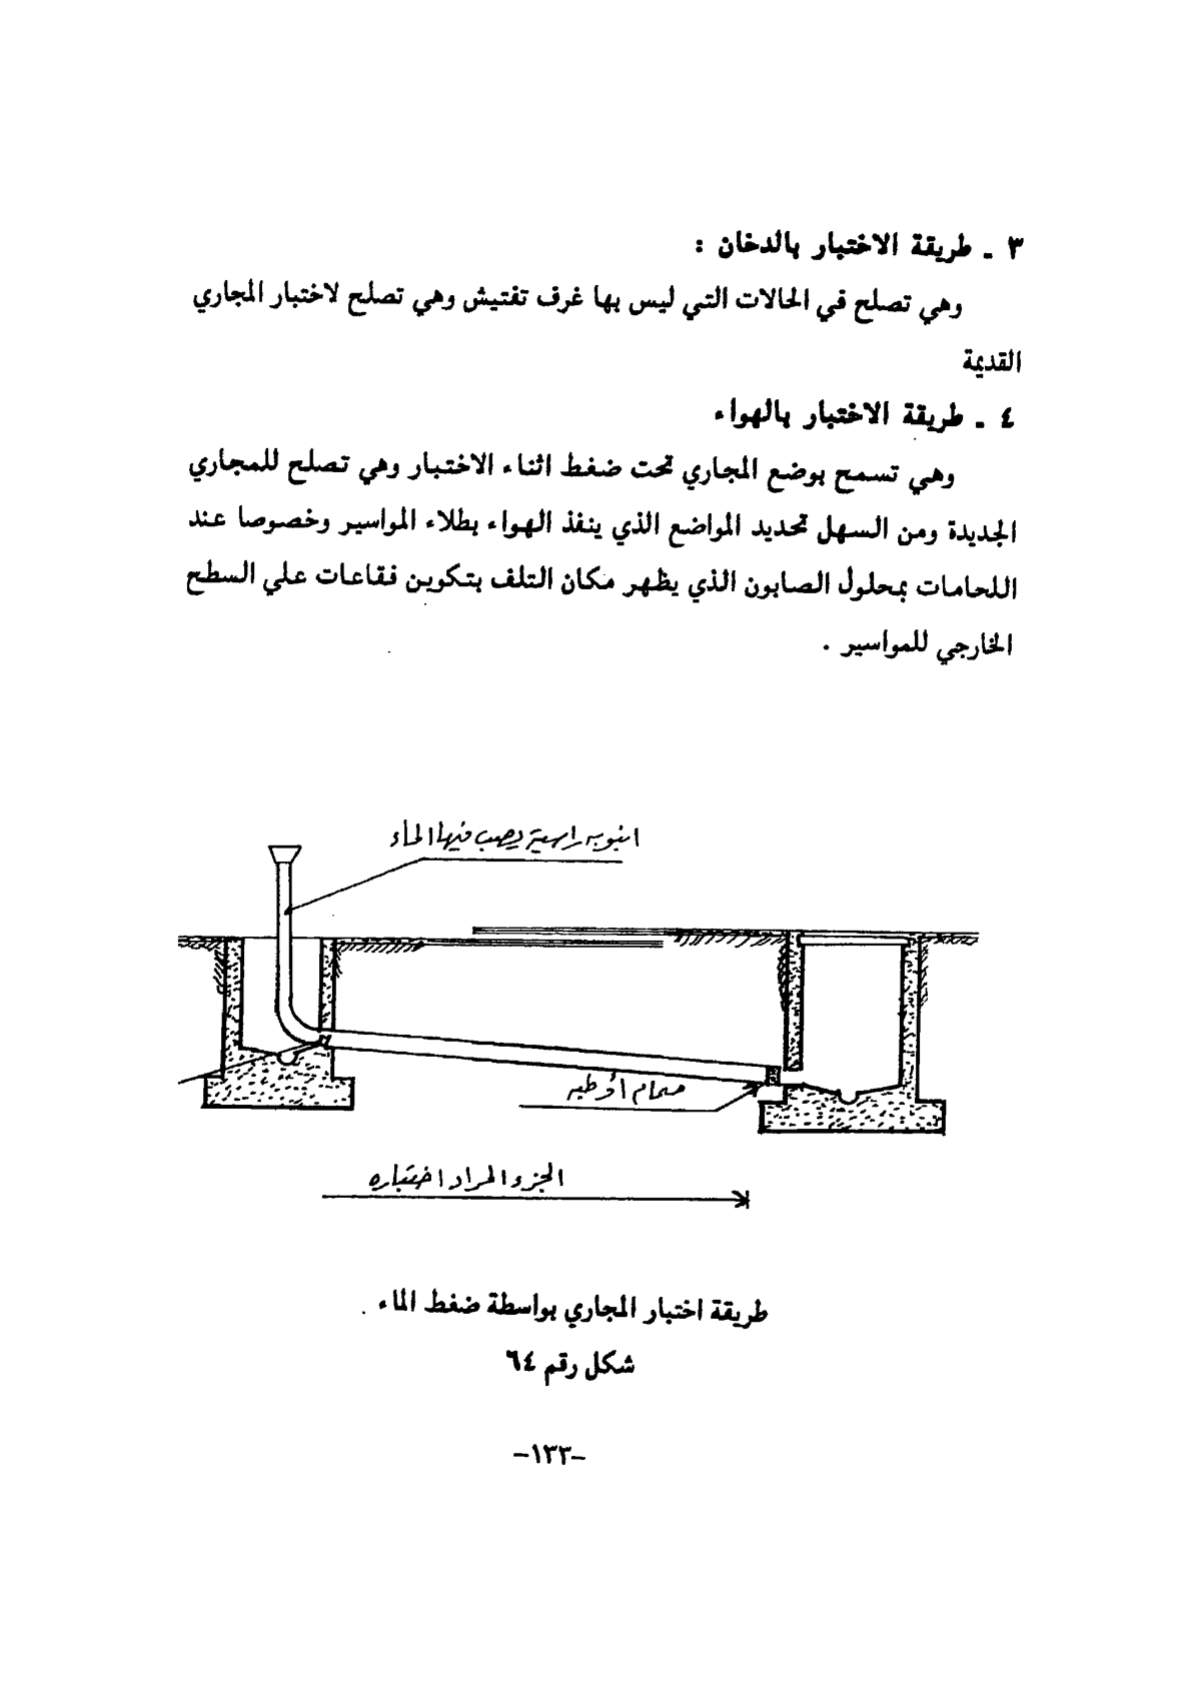 ٣ ـ طريقة الاختبار بالدخان :
وهي تصلح في الحالات التي ليس بها غرف تفتيش وهي تصلح لاختبار المجاري
القديمة
٤ ـ طريقة الاختبار بالهواء
وهي تسمح بوضع المجاري تحت ضغط اثناء الاختبار وهي تصلح للمجاري
الجديدة ومن السهل تحديد المواضع الذي ينفذ الهواء بطلاء المواسير وخصوصا عند
اللحامات بمحلول الصابون الذي يظهر مكان التلف بتكوين فقاعات علي السطح
الخارجي للمواسير .
انبوبه راسية يصب فيها الماء
صمام أو طبه
الجزء المراد اختباره
طريقة اختبار المجاري بواسطة ضغط الماء .
شكل رقم ٦٤
-١٣٣-